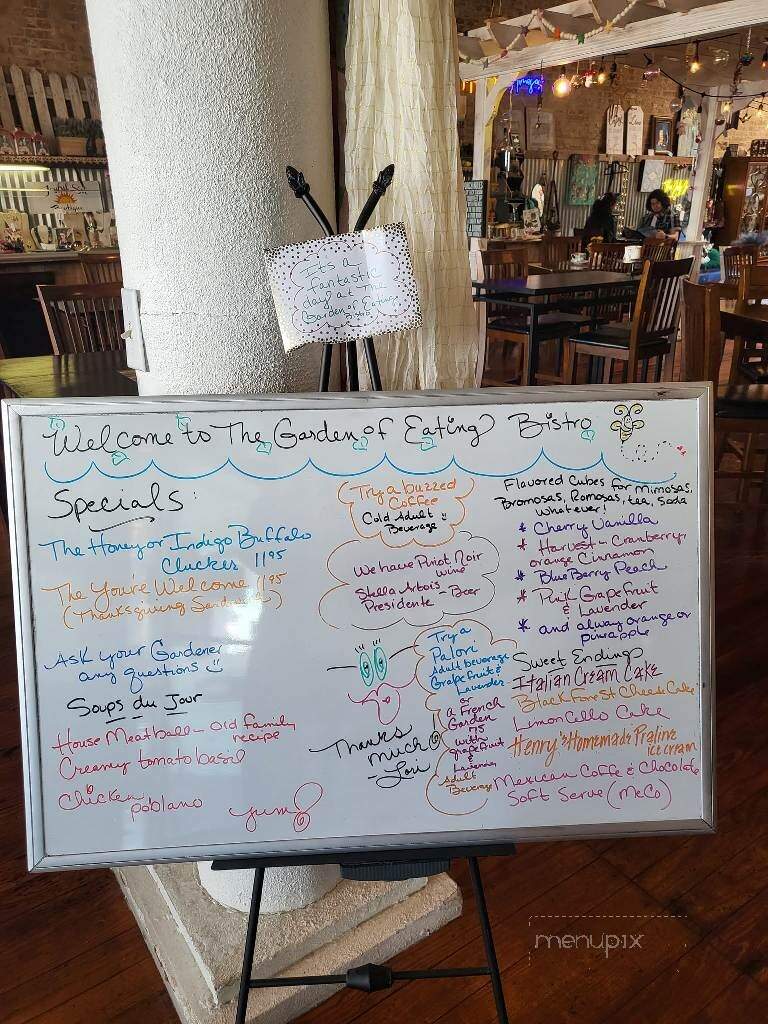 It's a
fantastic
day at The
Garden of Eating
Bistro
Welcome to The Garden of Eating Bistro
Specials:
The Honey or Indigo Buffalo
Cluckers 11 95
The You're Welcome 11 95
(Thanksgiving Sandwich)
Ask your Gardener
any questions
Soups du Jour
House Meatball - old family
recipe
Creamy tomato basil
Chicken
poblano
yum!
(Try a buzzed
Coffee
Cold Adult
Beverage
We have Pinot Noir
wine
Stella Artois
Presidente - Beer
Try a
Palori
Adult beverage
Grapefruit &
Lavender
or
a French
Garden
75
with
grapefruit
&
Lavender
Adult
Beverage
Thanks
much
-Lori
Flavored Cubes for mimosas,
Bromosas, Romosas, tea, Soda
whatever!
* Cherry Vanilla
* Harvest - Cranberry,
orange Cinnamon
* Blue Berry Peach
* Pink Grapefruit
& Lavender
* and alway orange or
pineapple
Sweet Endings
Italian Cream Cake
Black Forest Cheese Cake
Limon Cello Cake
Henry's Homemade Praline
ice cream
Mexican Coffe & Chocolate
Soft Serve (MeCo)
menupix